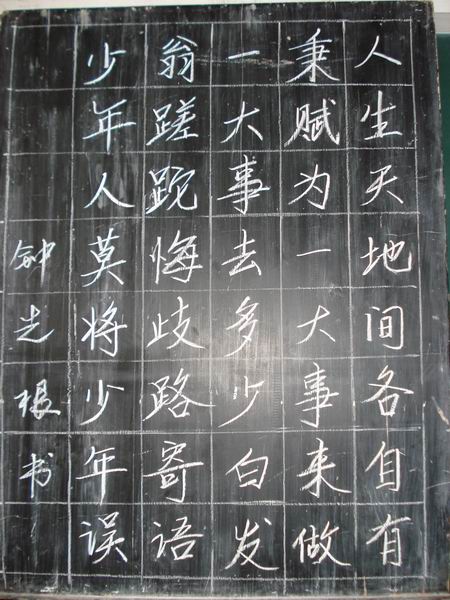 人生天地间各自有
秉赋为一大事来做
一大事去多少白发
翁蹉跎悔歧路寄语
少年人莫将少年误
钟先根书